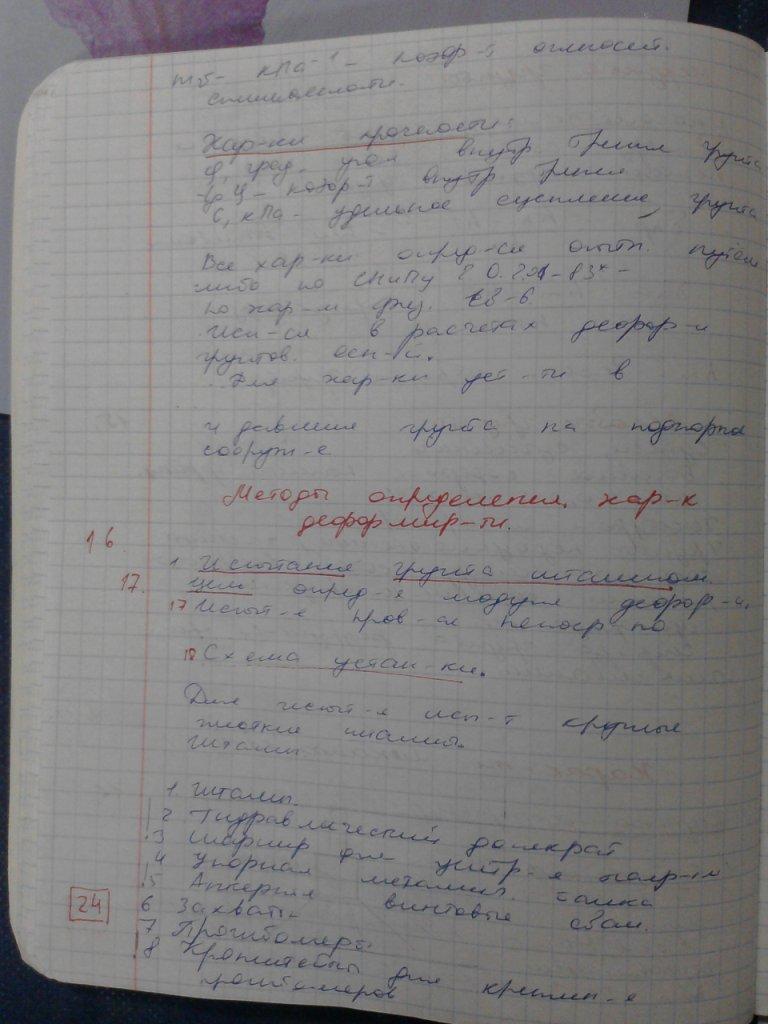 кПа-1 - коэф-т относит.
сжимаемости.
Хар-ки прочности:
φ, град. угол внутр трения грунта
коэф-т внутр трения
С, кПа - удельное сцепление грунта
Все хар-ки опред-ся опытн. путем
либо по СНиПу 2.02.01-83* -
по хар-м физ. св-в
Исп-ся в расчетах дефор-и
грунтов. осн-и.
Эти хар-ки уст-ти в
и давления грунта на подпорные
сооруж-е
Методы определения хар-к
деформир-ти.
16
1 Испытания грунта штампом.
17. Цель опред-я модуля дефор-и.
17 Испыт-е пров-ся непоср-но
18 Схема устан-ки.
Для испыт-я исп-т круглые
жесткие штампы.
штампы.
1 Штамп.
2 Гидравлический домкрат
3 Шарнир для центр-я нагр-и
4 Упорная металлич. балка
5 Анкерные винтовые сваи.
24
6 Захваты.
7 Прогибомеры
8 Кронштейны для креплен-я
прогибомеров